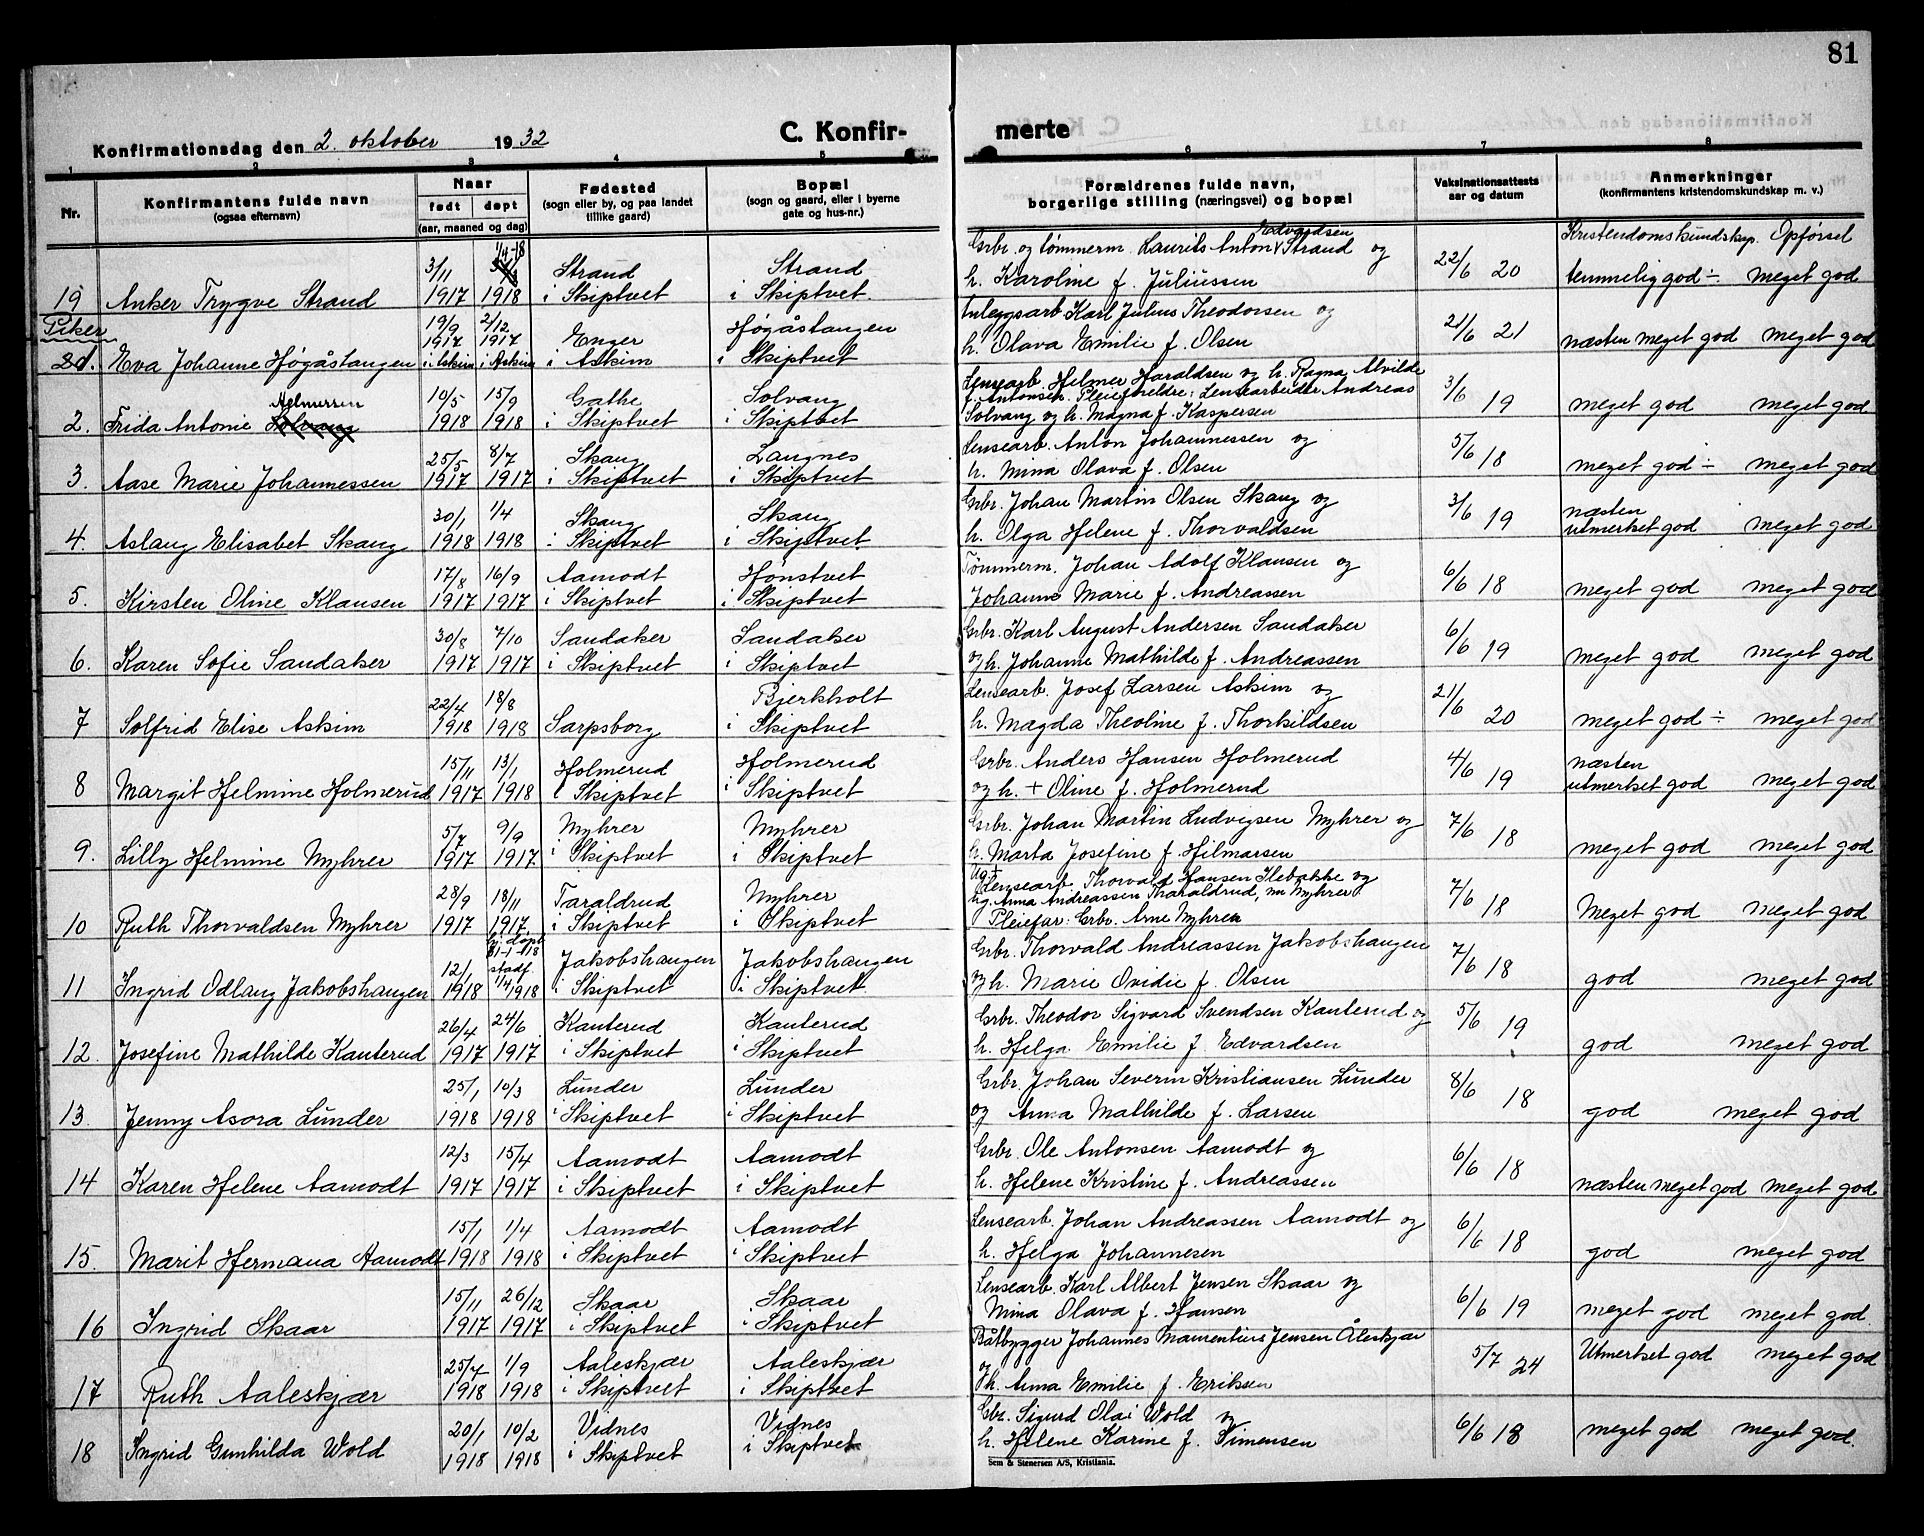 81
Konfirmationsdag den 2. oktober 1932
C. Konfir-
merte
1 2 3 4 5 6 7 8
Nr.
Konfirmantens fulde navn
(ogsaa efternavn)
Naar
født døpt
(aar, maaned og dag)
Fødested
(sogn eller by, og paa landet
tillike gaard)
Bopæl
(sogn og gaard, eller i byerne
gate og hus-nr.)
Forældrenes fulde navn,
borgerlige stilling (næringsvei) og bopæl
Vaksinationsattests
aar og datum
Anmerkninger
(konfirmantens kristendomskundskap m. v.)
Kristendomskundskap. Opførsel
1/4-18 Edvardsen
3/11 Strand Strand Grbr. og tømmerm. Laurits Anton Strand og 22/6 20
19 Anker Trygve Strand 1917 1918 i Skiptvet i Skiptvet. h. Karoline f. Juliussen temmelig god ÷ meget god
Piker
19/9 2/12 Enger Høgåstangen Anleggsarb. Karl Julius Theodorsen og 21/6 21
1917 1917
Eva Johanne Høgåstangen i Askim i Askim i Askim i Skiptvet h. Olava Emilie f. Olsen næsten meget god meget god
10/5 15/9 Gathe Solvang Lensearb. Helmer Haraldsen og h. Ragna Alvilde 3/6 19
f. Antonsen. Pleieforeldre: Lensearbeider Andreas
2. Frida Antonie 1918 1918 i Skiptvet i Skiptvet Solvang og h. Magna f. Kaspersen meget god meget god
25/5 8/7 Skaug Langnes Lensearb. Anton Johannessen og 5/6 18
3. Aase Marie Johannessen 1917 1917 i Skiptvet i Skiptvet h. Mina Olava f. Olsen meget god ÷ meget god
30/1 1/4 Skaug Skaug Grbr. Johan Martin Olsen Skaug og 3/6 19 næsten
4. Aslaug Elisabet Skaug 1918 1918 i Skiptvet i Skiptvet. h. Olga Helene f. Thorvaldsen utmerket god meget god
17/8 16/9 Aamodt Hønstvet Tømmerm. Johan Adolf Klausen og 6/6 18
5. Kirsten Oline Klausen 1917 1917 i Skiptvet i Skiptvet Johanne Marie f. Andreassen meget god meget god
30/8 7/10 Sandaker Sandaker Grbr. Karl August Andersen Sandaker 6/6 19
6. Karen Sofie Sandaker 1917 1917 i Skiptvet i Skiptvet og h. Johanne Mathilde f. Andreassen meget god meget god
22/4 18/8 Bjerkholt Lensearb. Josef Larsen Askim og 21/6 20
7 Solfrid Elise Askim 1918 1918 Sarpsborg i Skiptvet h. Magda Theoline f. Thorkildsen meget god ÷ meget god
15/11 13/1 Holmerud Holmerud Grbr. Anders Hansen Holmerud 4/6 19 næsten
8 Margit Helmine Holmerud 1917 1918 i Skiptvet i Skiptvet og h. + Oline f. Holmerud utmerket god meget god
5/7 9/9 Myhrer Myhrer Grbr. Johan Martin Ludvigsen Myhrer og 7/6 18
9. Lilly Helmine Myhrer 1917 1917 i Skiptvet i Skiptvet h. Marta Josefine f. Hilmarsen meget god meget god
28/9 18/11 Taraldrud Myhrer Lensearb. Thorvald Hansen Ilebakke og 7/6 18
ug. Anna Andreassen Tharaldrud, nu Myhrer
10 Ruth Thorvaldsen Myhrer 1917 1917. i Skiptvet i Skiptvet Pleiefar: Grbr. Arne Myhrer Meget god meget god
hj. døpt
stadf.
12/1 Jakobshaugen Jakobshaugen Grbr. Thorvald Andreassen Jakobshaugen 7/6 18
11 Ingrid Odlaug Jakobshaugen 1918 1/4 1918 i Skiptvet i Skiptvet. og h. Marie Ovidie f. Olsen god meget god
26/4 24/6 Kanterud Kanterud Grbr. Theodor Sigvard Svendsen Kanterud og 5/6 19
12. Josefine Mathilde Kanterud 1917 1917 i Skiptvet i Skiptvet h. Helga Emilie f. Edvardsen god meget god
25/1 10/3 Lunder Lunder Grbr. Johan Severin Kristiansen Lunder 8/6 18
13. Jenny Asora Lunder 1918 1918 i Skiptvet i Skiptvet og Anna Mathilde f. Larsen god meget god
12/3 15/4 Aamodt Aamodt Grbr. Ole Antonsen Aamodt og 6/6 18
14 Karen Helene Aamodt 1917 1917 i Skiptvet i Skiptvet h. Helene Kristine f. Andreassen næsten meget god meget god
15/1 1/4 Aamodt Aamodt Lensearb. Johan Andreassen Aamodt og 6/6 18
15. Marit Hermana Aamodt 1918 1918 i Skiptvet i Skiptvet h. Helga Johannesen god meget god
15/11 26/12 Skaar Skaar Lensearb. Karl Albert Jensen Skaar og 6/6 19
16 Ingrid Skaar 1917 1917 i Skiptvet i Skiptvet Mina Olava f. Hansen meget god meget god
25/4 1/9 Aaleskjær Aaleskjær Båtbygger Johannes Mamentius Jensen Åleskjær 5/7 24 Utmerket god meget god
og
17 Ruth Aaleskjær 1918 1918 i Skiptvet i Skiptvet h. Anna Emilie f. Eriksen
20/1 10/2 Vidnes Vidnes Gbr. Sigurd Olai Wold og 6/6 18
18 Ingrid Gunhilda Wold 1918 1918 i Skiptvet i Skiptvet h. Helene Karine f. Simensen meget god meget god.
Sem & Stenersen A/S, Kristiania.